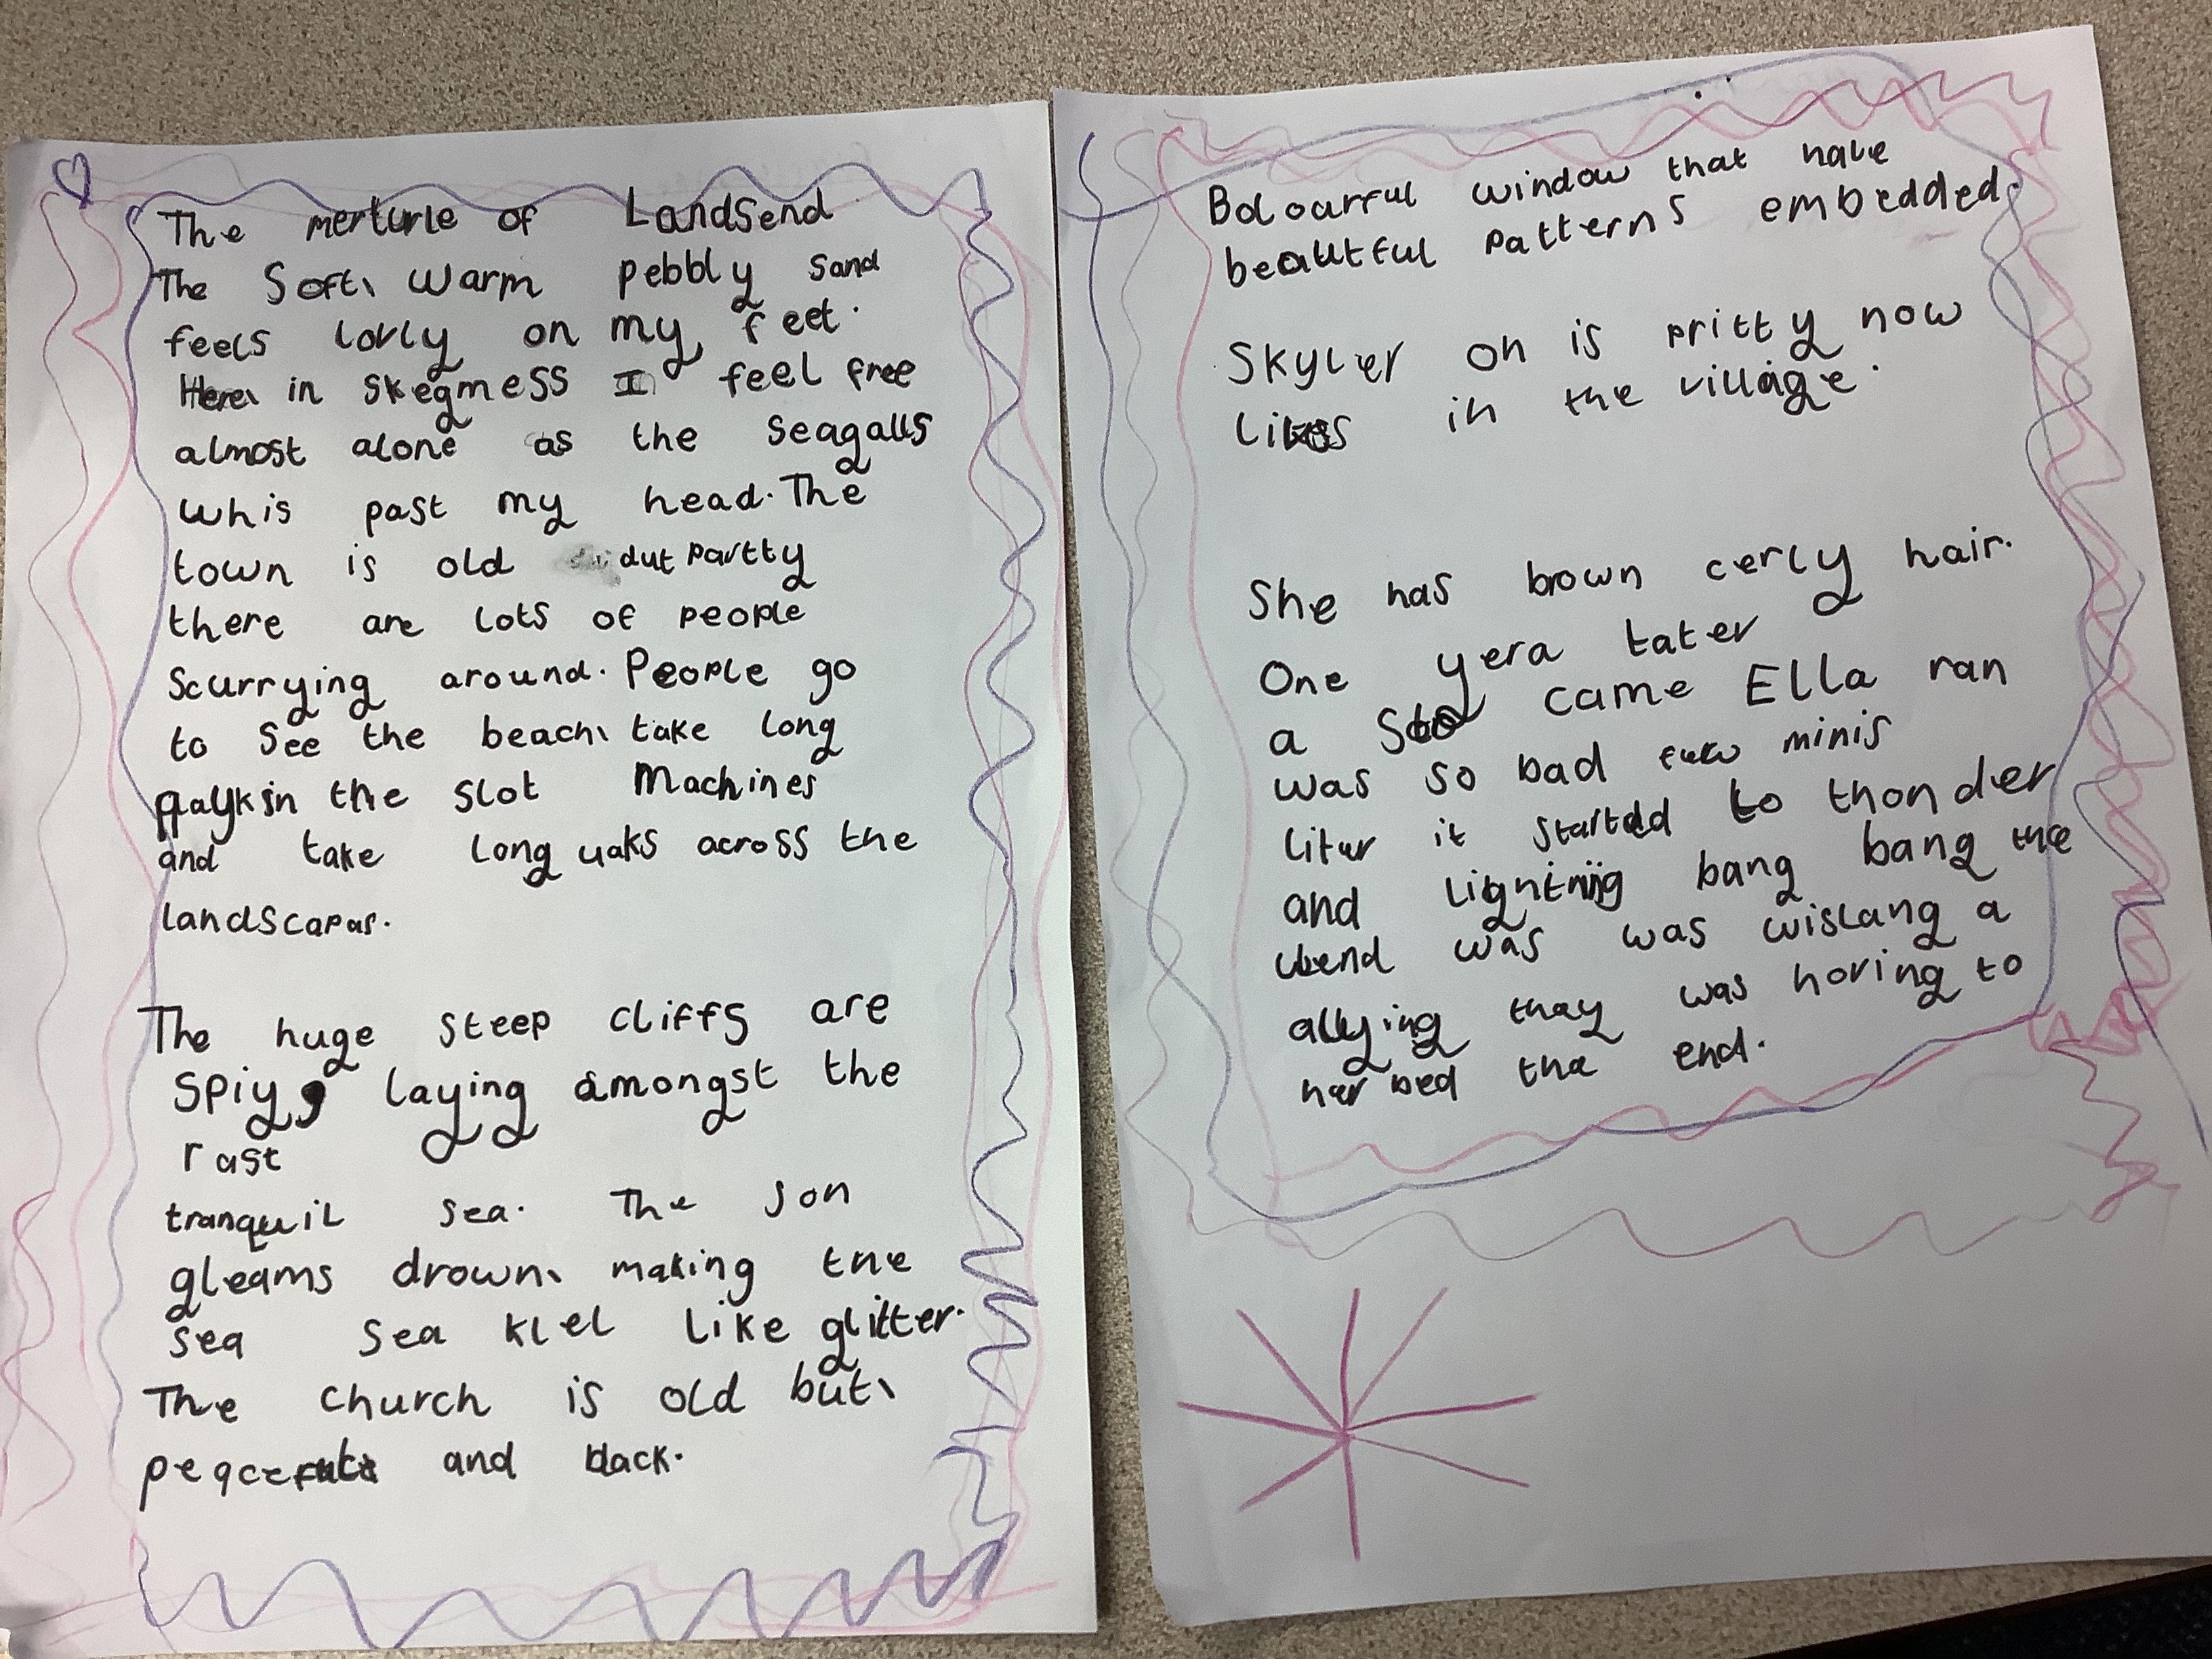 The merturle of LandSend
The Soft, warm pebbly sand
feels lovly on my feet.
Here, in skegmess I feel free
almost alone as the seagalls
whis past my head. The
town is old dut partty
there are lots of people
Scurrying around. People go
to see the beach, take long
in the slot Machines
and take long uaks across the
landscapas.
The huge steep cliffs are
Spiyg laying amongst the
rast
tranquil sea. The son
gleams drown, making the
sea sea klel like glitter.
The church is old but,
and black.
Bolourful window that have
beautful patterns embedded.
Skyler oh is pritty now
in the village.
She has brown cerly hair.
One yera tater
a came Ella ran
was so bad minis
liter it started to thonder
and bang bang the
was was wislang a
thay was horing to
har bed tha end.